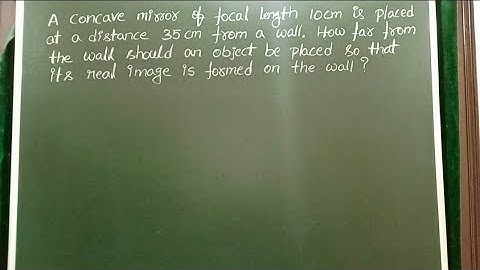 A concave mirror of focal length 10cm is placed
at a distance 35cm from a wall. How far from
the wall should an object be placed so that
its real image is formed on the wall?